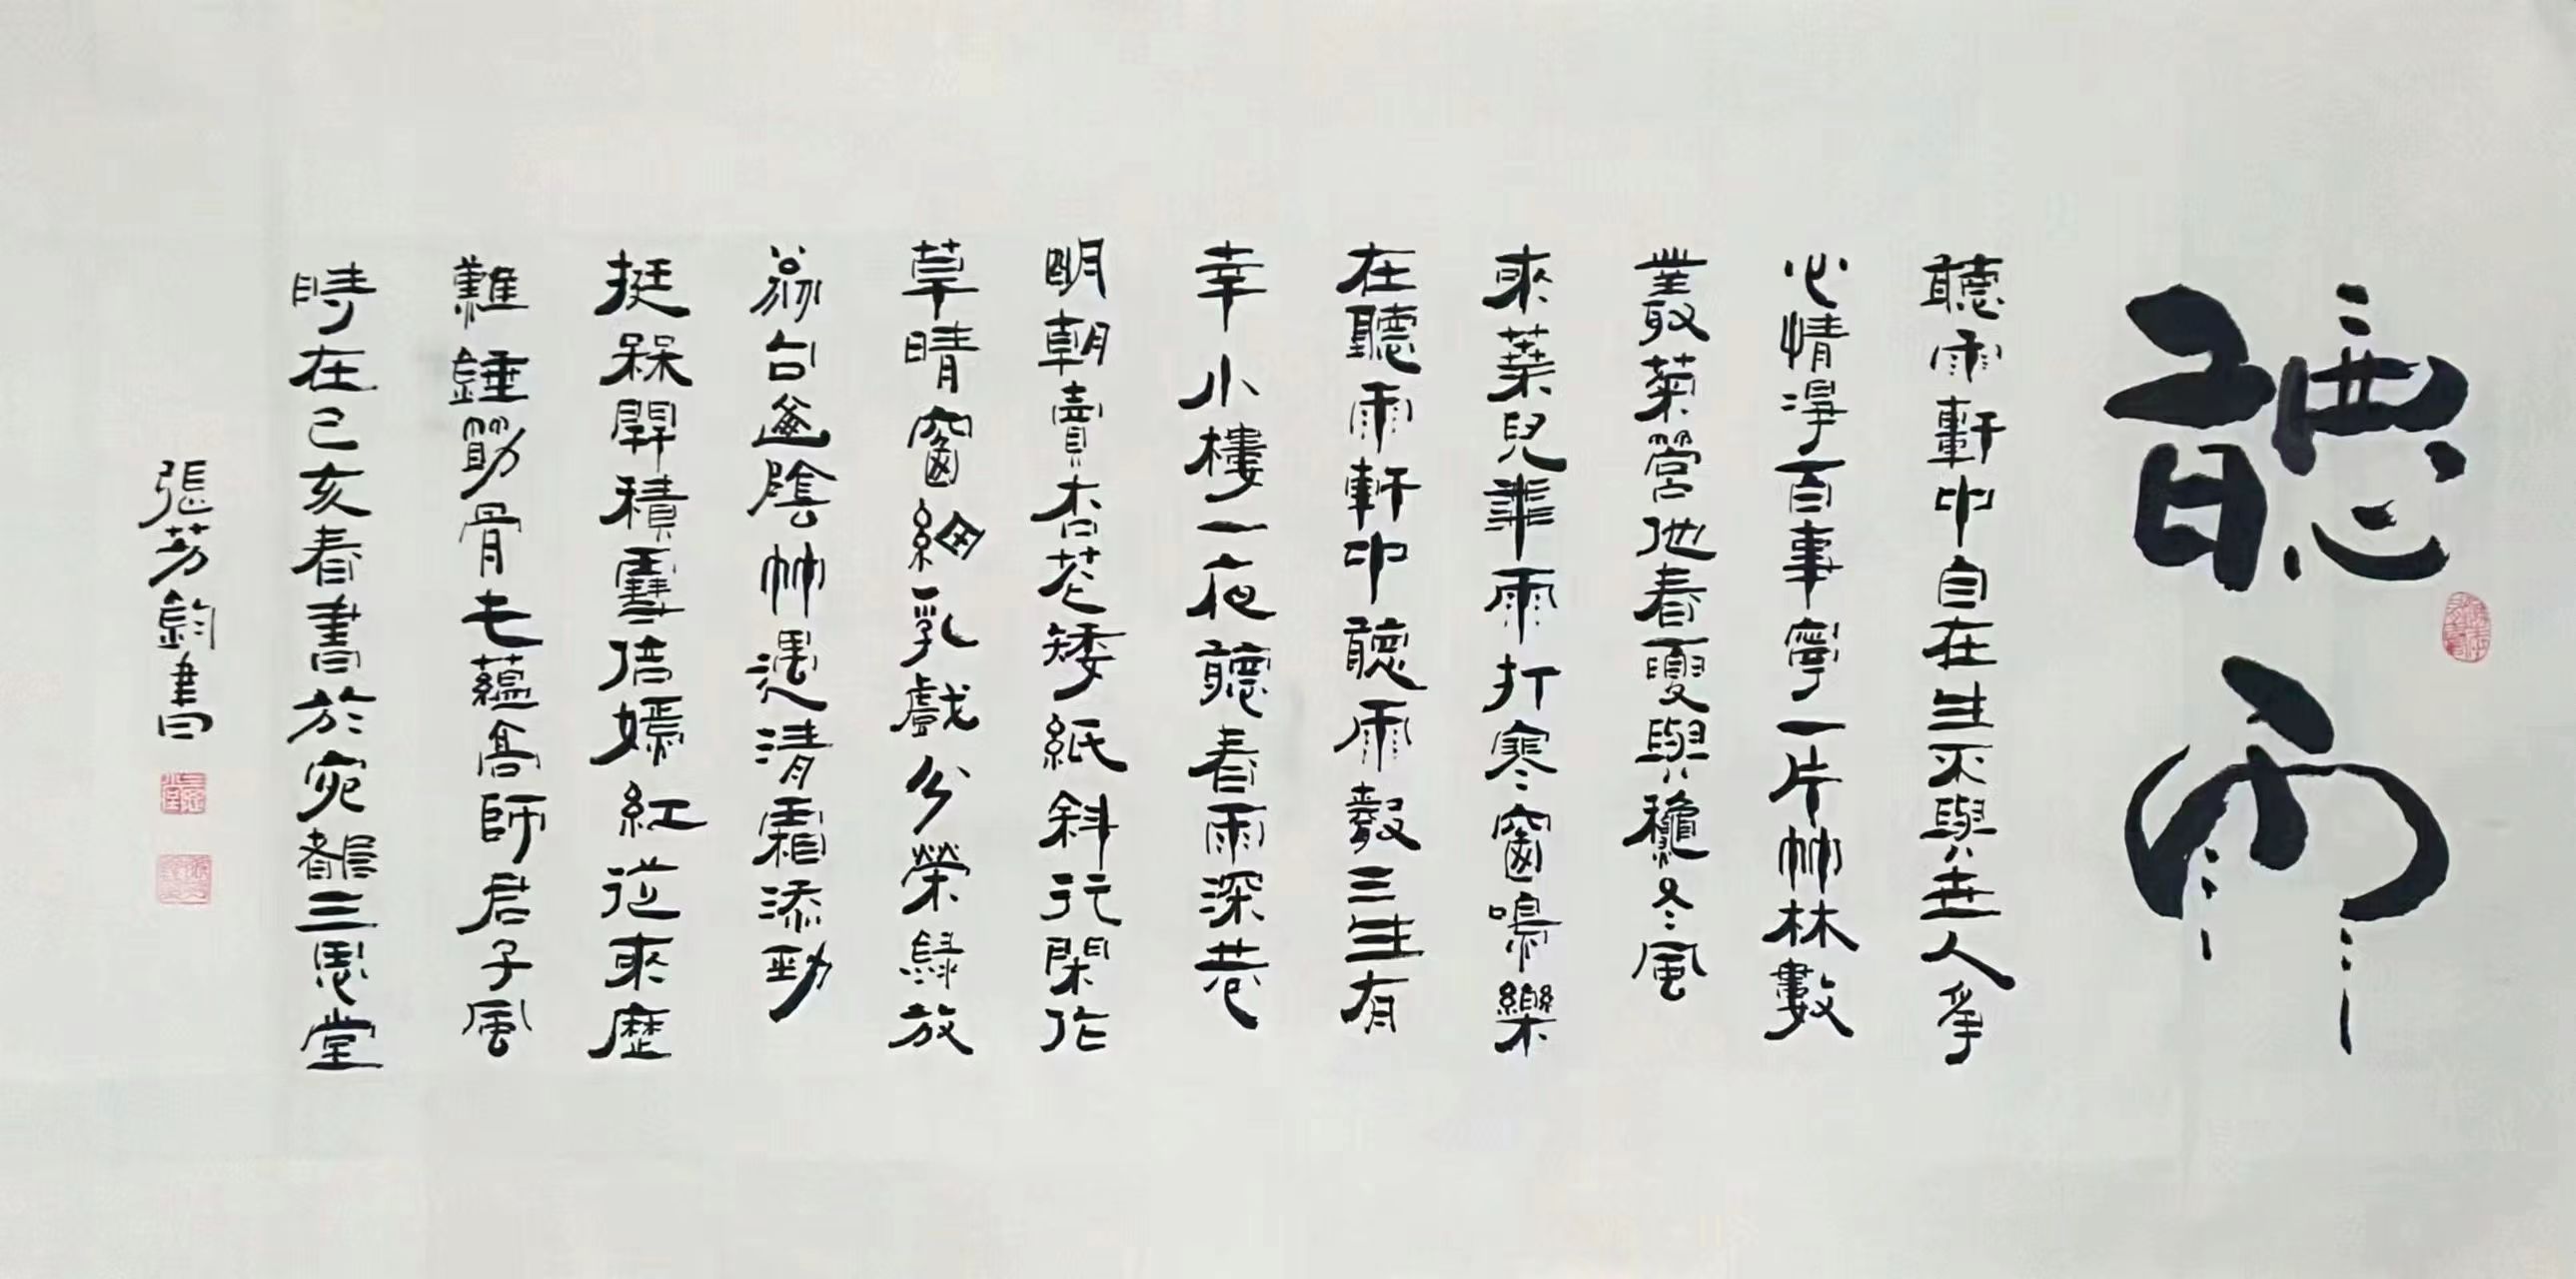 聽雨
聽雨軒中自在生不與世人爭
心情淨百事寧一片竹林數
叢菊管他春夏與穐冬風
來葉兒乖雨打寒窗鳴樂
在聽雨軒中聽雨聲三生有
幸小樓一夜聽春雨深巷
明朝賣杏花矮紙斜行閑作
草晴窗細乳戲分放
台陰竹遇清霜添勁
挺槑開積雪倍嫣紅從來歷
難錘筋骨蘊高師君子風
時在己亥春書於宛都三思堂
張芳鈞書